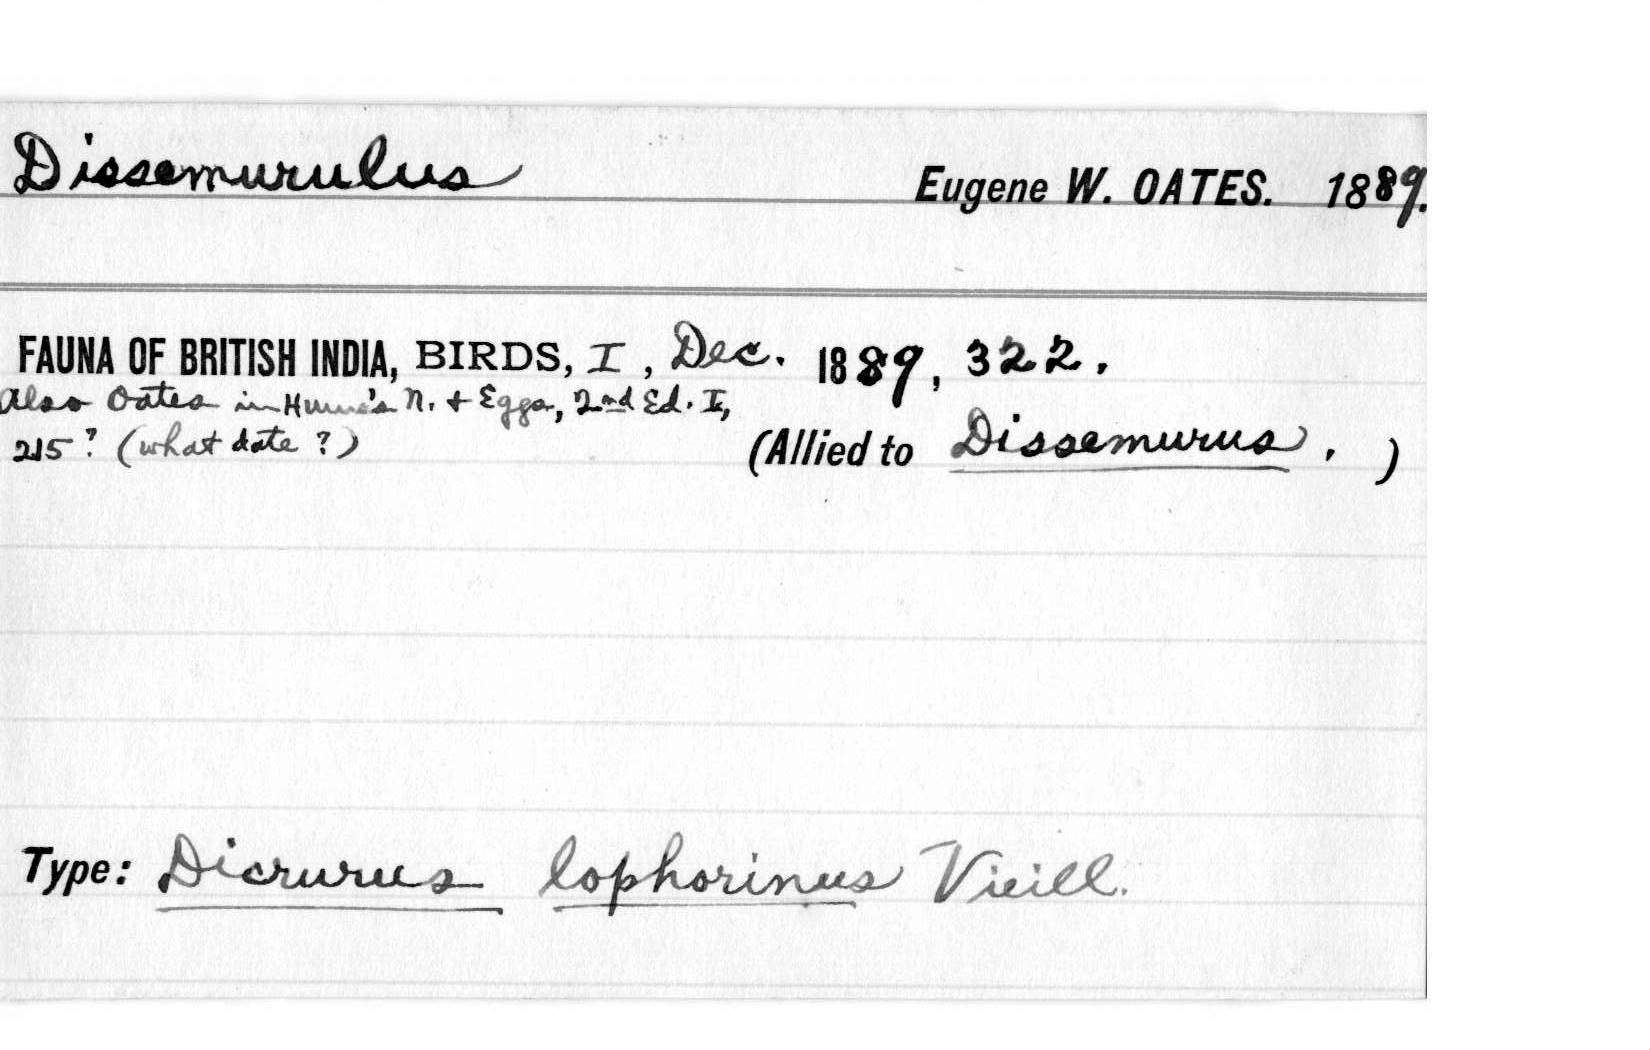 Dissemurulus Eugene W. OATES. 1889.
FAUNA OF BRITISH INDIA, BIRDS, I, Dec. 1889, 322.
Also Oates in Hume's N. + Eggs, 2nd Ed. I,
215? (what date?)
(Allied to Dissemurus. )
Type: Dicrurus lophorinus Vieill.